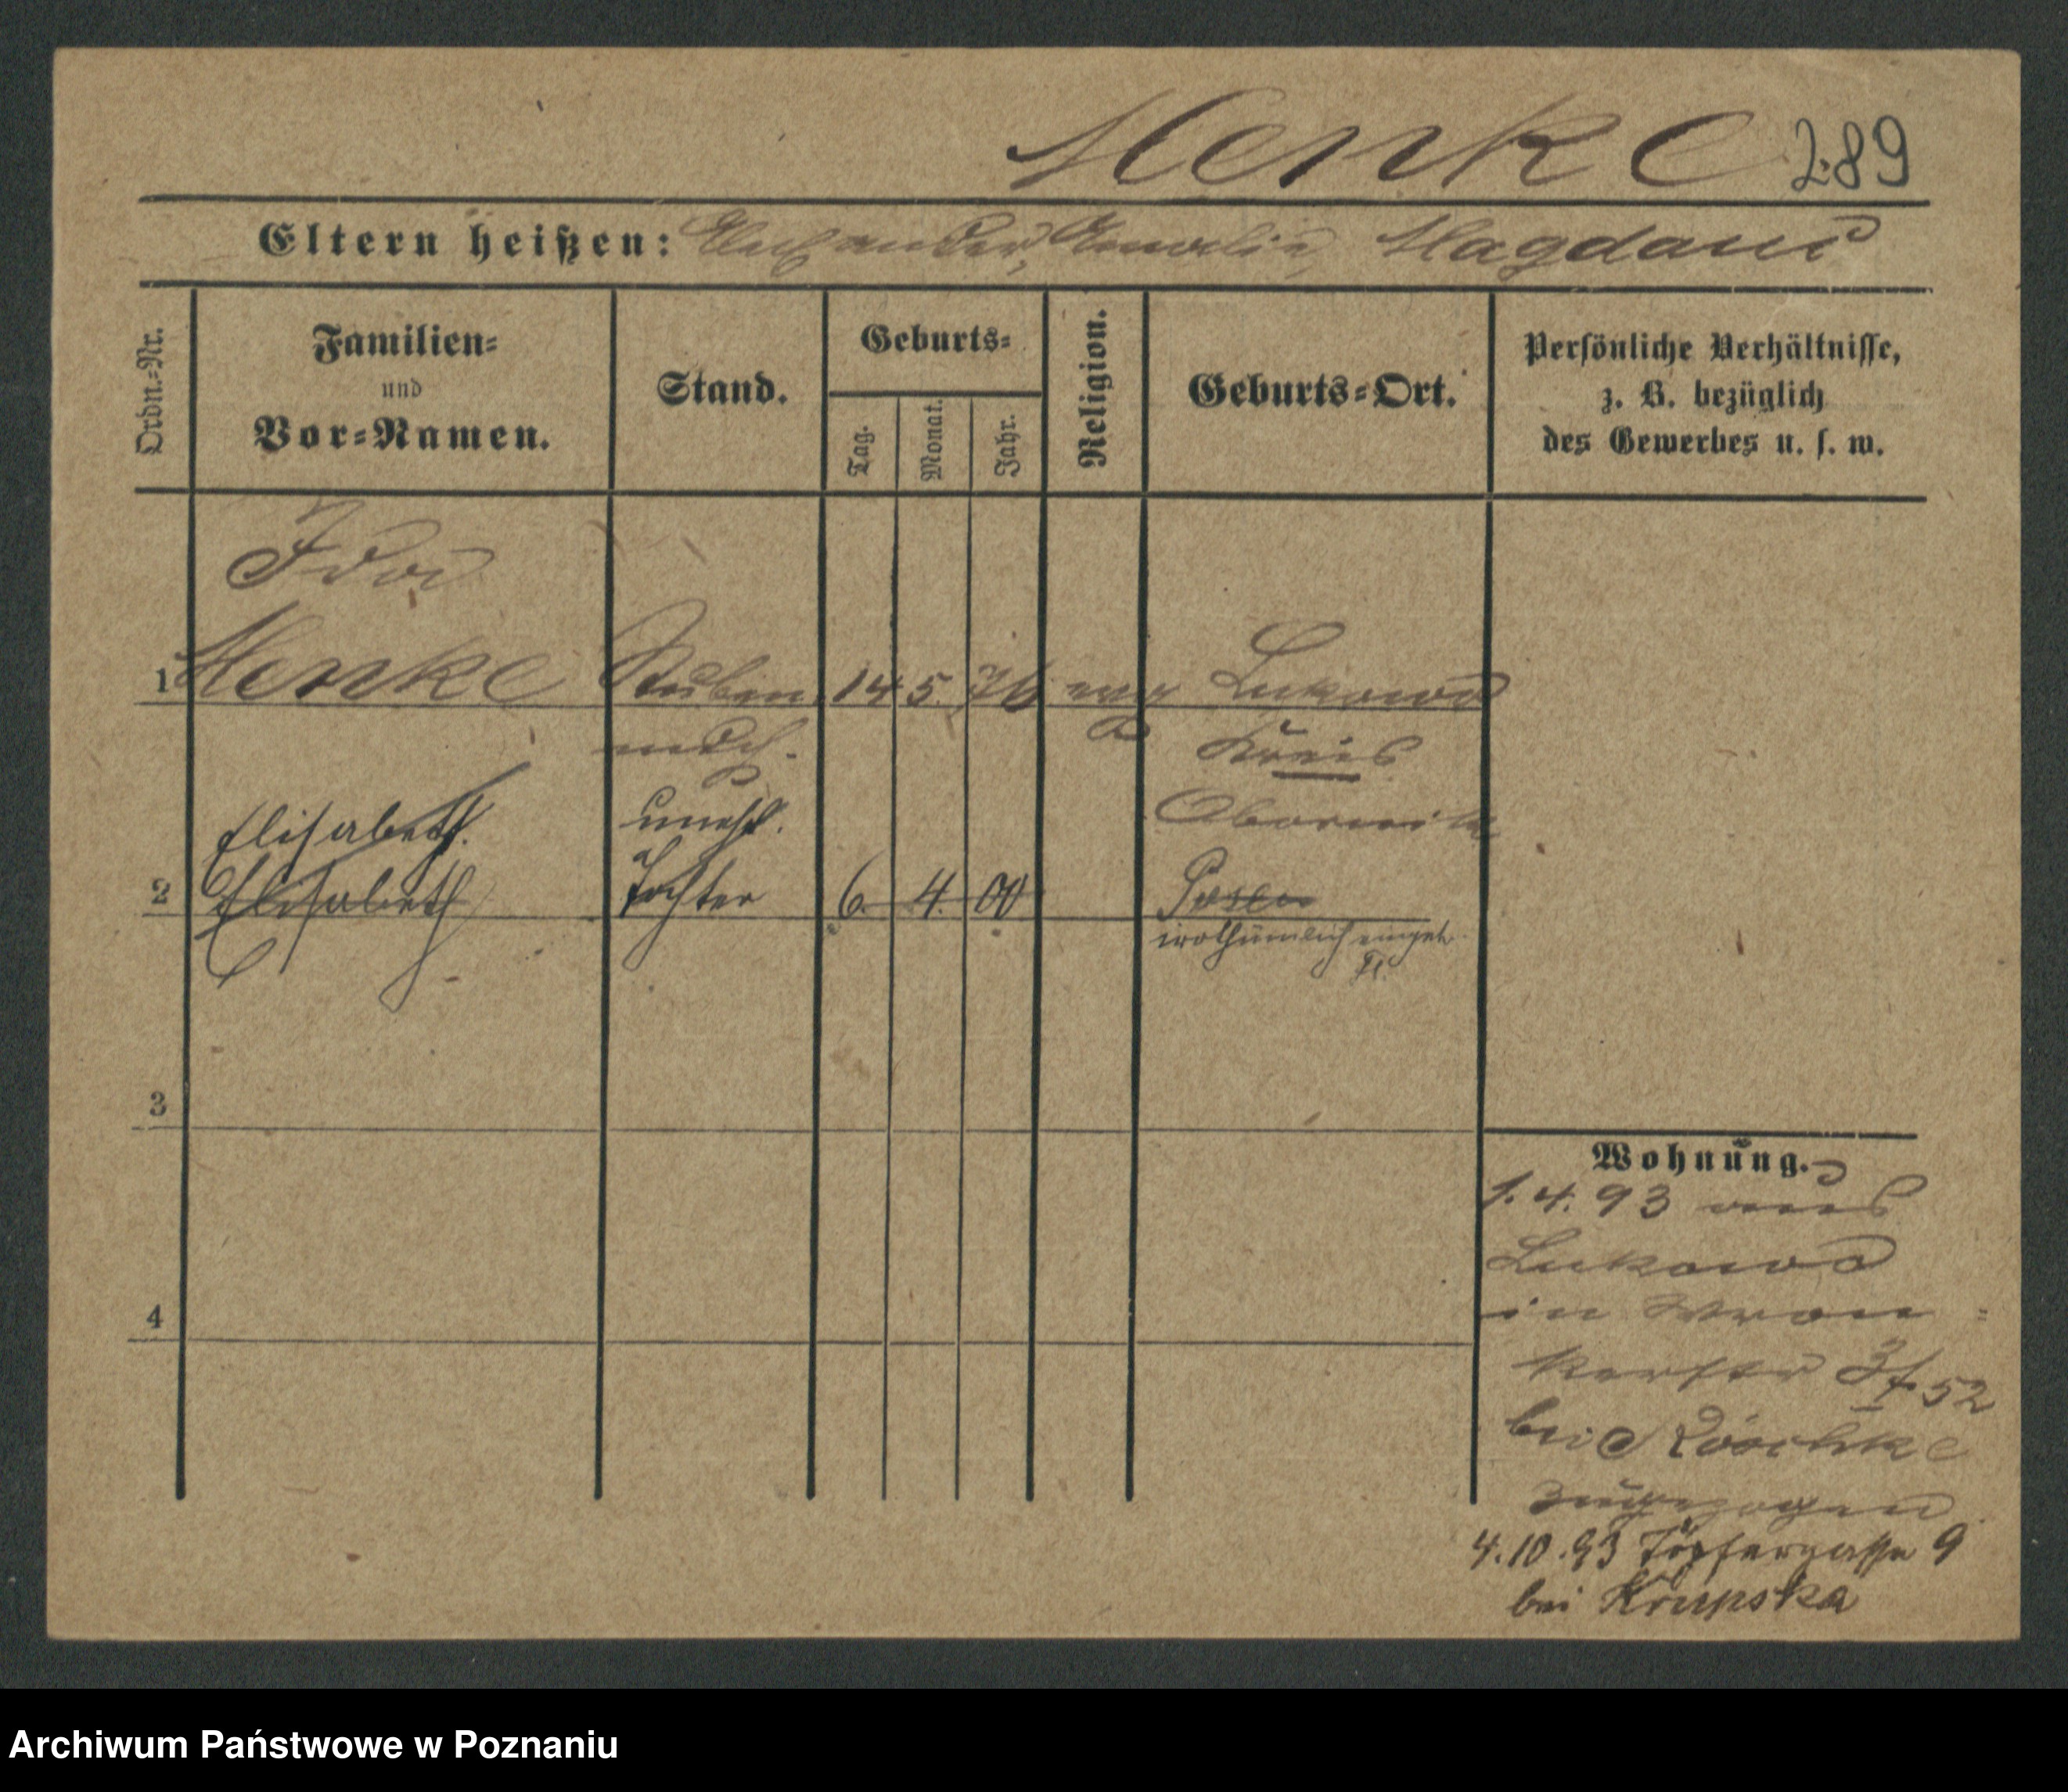 Menke 289
Eltern heißen: Alexander, Amalie, Magdans
Ordn.-Nr.
Familien-
und
Vor-Namen.
Stand.
Geburts-
Tag.
Monat.
Jahr.
Religion.
Geburts-Ort.
Persönliche Verhältnisse,
z. B. bezüglich
des Gewerbes u. s. w.
Ida
1 Menke Stuben 14 5. 76 evg Lukowo
mdch. Kreis
Elisabeth. unehl. Obornik
2 Elisabeth Tochter 6. 4. 00 Posen
irrthümlich eingetr.
3
4
Wohnung.
1. 4. 93 aus
Lukowo
in Wron=
kerstr 3/4 52
bei
zugezogen
4. 10. 93 Töpfergasse 9
bei Krupska
Archiwum Państwowe w Poznaniu